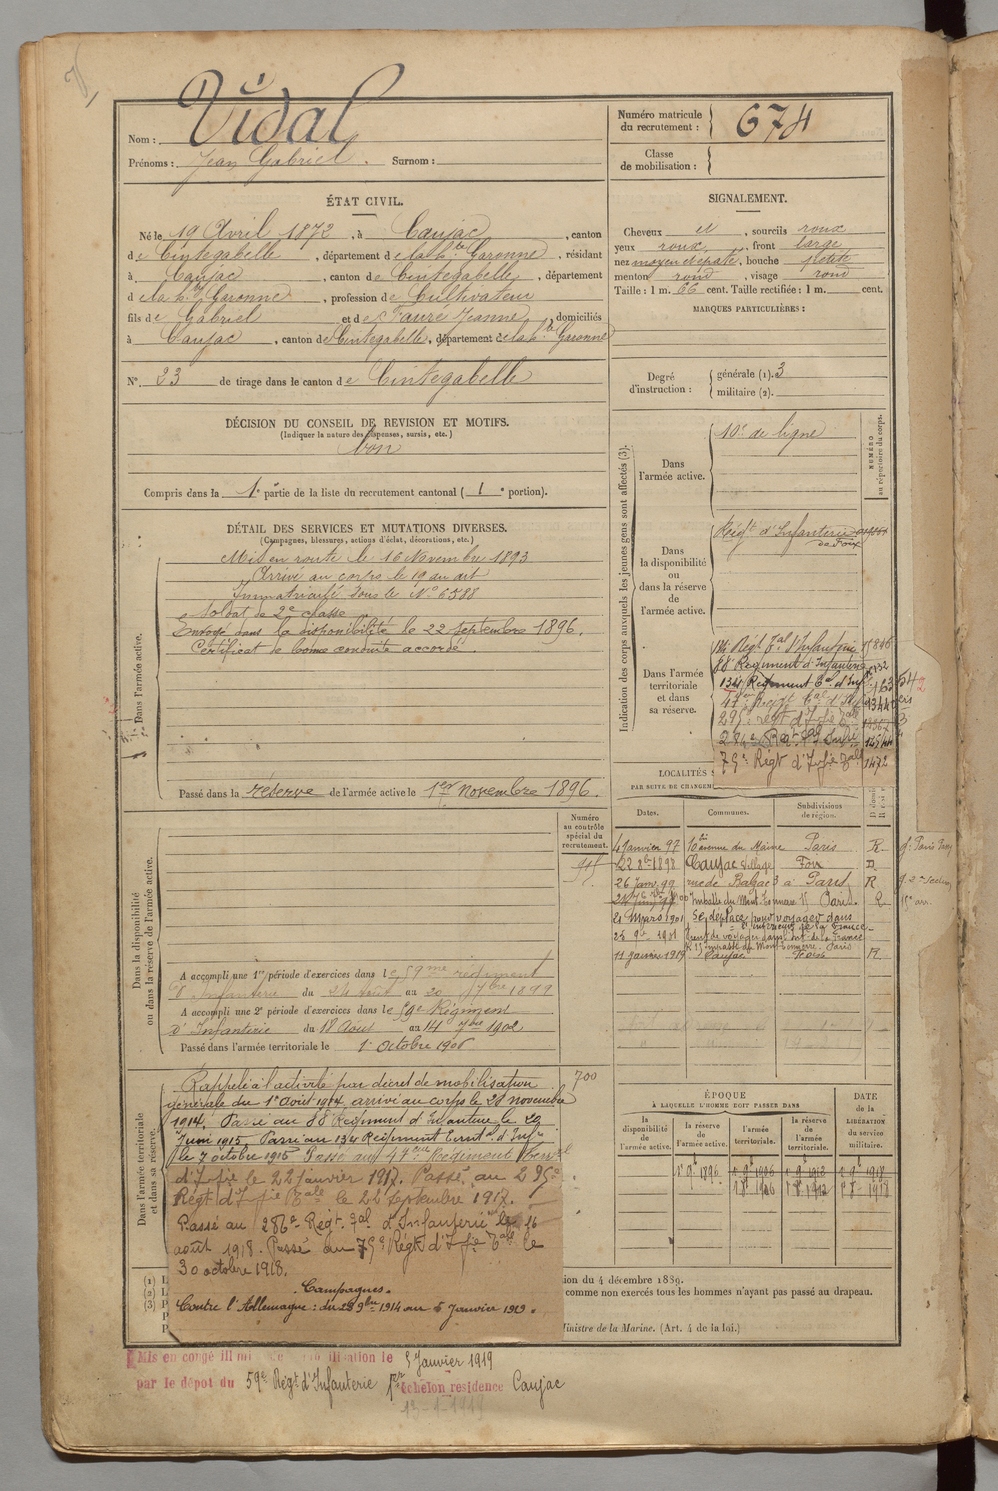 Nom : Vidal
Prénoms : Jean Gabriel. Surnom :
Numéro matricule du recrutement : 674
Classe de mobilisation :
ÉTAT CIVIL.
Né le 19 Avril 1872, à Caujac, canton
de Cintegabelle, département de la hte Garonne, résidant
à Caujac, canton de Cintegabelle, département
d ela hte Garonne, profession de Cultivateur
fils de Gabriel et de Faure Jeanne, domiciliés
à Caujac, canton de Cintegabelle, département de la hte Garonne
N° 23 de tirage dans le canton de Cintegabelle
SIGNALEMENT.
Cheveux et, sourcils roux
yeux roux, front large
nez moyen et épaté, bouche petite
menton rond, visage rond
Taille : 1 m. 66 cent. Taille rectifiée : 1 m. cent.
MARQUES PARTICULIÈRES :
Degré d'instruction : générale (1). 3
militaire (2).
DÉCISION DU CONSEIL DE REVISION ET MOTIFS.
(Indiquer la nature des dispenses, sursis, etc.)
bon
Compris dans la 1e partie de la liste du recrutement cantonal (1e portion).
DÉTAIL DES SERVICES ET MUTATIONS DIVERSES.
(Campagnes, blessures, actions d'éclat, décorations, etc.)
Dans l'armée active.
Mis en route le 16 Novembre 1893
Arrivé au corps le 19 du dit
Immatriculé sous le N° 6588
Soldat de 2e classe
Envoyé dans la disponibilité le 22 Septembre 1896.
Certificat de bonne conduite accordé.
Passé dans la réserve de l'armée active le 1er Novembre 1896.
Indication des corps auxquels les jeunes gens sont affectés (3).
NUMÉRO au répertoire du corps.
Dans l'armée active.
10e de ligne
Dans la disponibilité ou dans la réserve de l'armée active.
Régt d'Infanterie
de Foix
Dans l'armée territoriale et dans sa réserve.
134 Régt Tal d'Infanterie
88 Régiment d'Infanterie
134 Régiment Tal d'Inf
295e régt d'Infie
286e Régt Tal Infie
75e Régt d'Infie Tale 1472
LOCALITÉS
PAR SUITE DE CHANGEM
Dates. Communes. Subdivisions de région.
4 Janvier 97 avenue du Maine Paris R
22 8b 1898 Caujac village Foix D
26 Janv. 99 rue de Balzac 3 à Paris R
Paris. R
21 Mars 1901 Se déplace pour voyager dans
l'intérieur de la France
25 9b 1901
11 janvier 1919 Caujac Foix R
Numéro au contrôle spécial du recrutement.
Dans la disponibilité ou dans la réserve de l'armée active.
A accompli une 1re période d'exercices dans le 59me régiment
d'Infanterie du 24 Août au 20 7bre 1899
A accompli une 2e période d'exercices dans le 59e Régiment
d'Infanterie du 18 Août au 14 7bre 1902
Passé dans l'armée territoriale le 1 Octobre 1906
Dans l'armée territoriale et dans sa réserve.
700
Rappelé à l'activité par décret de mobilisation
générale du 1er Août 1914, arrivé au corps le 28 novembre
1914. Passé au 88 Régiment d'Infanterie le 29
Juin 1915. Passé au 134 Régiment Territal d'Infie
le 7 octobre 1915 Passé au 47eme Régiment
d'Infie le 22 janvier 1917. Passé au 295e
Régt d'Infie Tale le 22 Septembre 1917.
Passé au 286e Régt. Tal d'Infanterie le 16
août 1918. Passé au 75e Régt d'Infie Tale le
30 octobre 1918.
Campagnes.
Contre l'Allemagne : du 28 9bre 1914 au 5 Janvier 1919.
ÉPOQUE
À LAQUELLE L'HOMME DOIT PASSER DANS
DATE de la LIBÉRATION du service militaire.
la disponibilité de l'armée active. la réserve de l'armée active. l'armée territoriale. la réserve de l'armée territoriale.
(1) L
(2) L
(3) P
P
P
ion du 4 décembre 1889.
comme non exercés tous les hommes n'ayant pas passé au drapeau.
Ministre de la Marine. (Art. 4 de la loi.)
Mis en congé illimité de démobilisation le 5 Janvier 1919
par le dépôt du 59e Régt d'Infanterie 1er échelon résidence Caujac